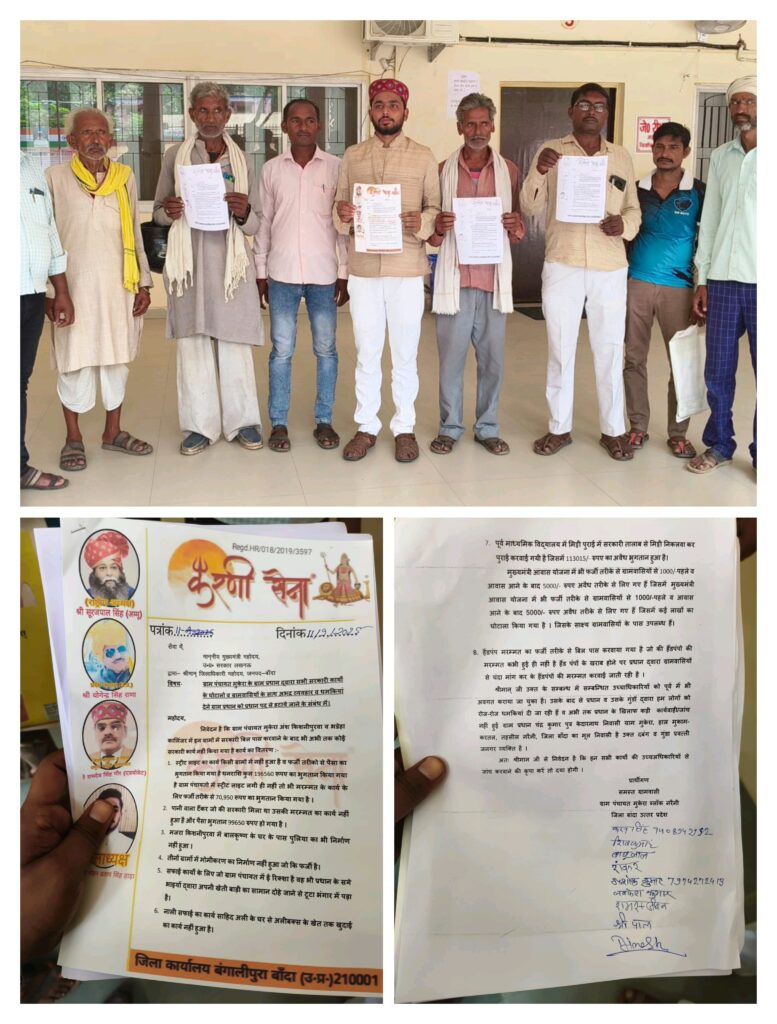 Regd.HR/018/2019/3597
करणी सेना
(राष्ट्रीय अध्यक्ष)
श्री सूरजपाल सिंह (अम्मू)
श्री योगेन्द्र सिंह राणा
पत्रांक.11-9-2025 दिनांक 11/9/2025
सेवा में,
मानृनीय मुख्यमंत्री महोदय,
उ०प्र० सरकार लखनऊ
द्वारा- श्रीमान् जिलाधिकारी महोदय, जनपद-बाँदा
विषय- ग्राम पंचायत मुकेरा के ग्राम प्रधान द्वारा सभी सरकारी कार्यों
के घोटालों व ग्रामवासियों के साथ अभद्र व्यवहार व धमकियां
देने ग्राम प्रधान को प्रधान पद से हटाये जाने के संबंध में।
महोदय,
निवेदन है कि ग्राम पंचायत मुकेरा अंश किशनीपुरवा व भग्रेहा
कालिंजर में इन ग्रामों में सरकारी बिल पास करवाने के बाद भी अभी तक कोई
सरकारी कार्य नहीं किया गया है कार्य का विवरण :-
1. स्ट्रीट लाइट का कार्य किसी ग्रामों में नहीं हुआ है व फर्जी तरीको से पैसा का
भुगतान किया गया है धनराशि कुल 196560 रुपए का भुगतान किया गया
है ग्राम पंचायतो में स्ट्रीट लाइट लगी ही नहीं तो भी मरम्मत के कार्य के
लिए फर्जी तरीके से 70,950 रुपए का भुगतान किया गया है ।
2. पानी वाला टैंकर जो की सरकारी मिला था उसकी मरम्मत का कार्य नहीं
हुआ है और पैसा भुगतान 99650 रुपए हो गया है ।
3. मजरा किशनीपुरवा में बालकृष्ण के घर के पास पुलिया का भी निर्माण
नही हुआ ।
4. तीनों ग्रामों में मोमीकरण का निर्माण नहीं हुआ जो कि फर्जी है।
5. सफाई कार्यों के लिए जो ग्राम पंचायत में ई रिक्शा है वह भी प्रधान के सगे
भाइयो द्वारा अपनी खेती बाड़ी का सामान ढोहे जाने से टूटा भंगार में पड़ा
है।
6. नाली सफाई का कार्य साहिद अली के घर से अलीबक्स के खेत तक खुदाई
का कार्य नहीं हुआ है।
जिला कार्यालय बंगालीपुरा बाँदा (उ-प्र-)210001
7. पूर्व माध्यमिक विद्यालय में मिट्टी पुराई में सरकारी तालाब से मिट्टी निकलवा कर
पुराई करवाई गयी है जिसमें 113015/- रुपए का अवैध भुगतान हुआ है।
मुख्यमंत्री आवास योजना में भी फर्जी तरीके से ग्रामवासियों से 1000/-पहले व
आवास आने के बाद 5000/- रुपए अवैध तरीके से लिए गए हैं जिसमें मुख्यमंत्री
आवास योजना में भी फर्जी तरीके से ग्रामवासियों से 1000/-पहले व आवास
आने के बाद 5000/- रुपए अवैध तरीके से लिए गए हैं जिसमें कई लाखों का
घोटाला किया गया है । जिसके साक्ष्य ग्रामवासियों के पास उपलब्ध हैं।
8. हैंडपंप मरम्मत का फर्जी तरीके से बिल पास करवाया गया है जो की हैंडपंपों की
मरम्मत कभी हुई ही नही है हैंड पंपों के खराब होने पर प्रधान द्वारा ग्रामवासियों
से चंदा मांग कर के हैंडपंपों की मरम्मत करवाई जाती रही है।
श्रीमान् जी उक्त के सम्बन्ध में सम्बन्धित उच्चाधिकारियों को पूर्व में भी
अवगत कराया जा चुका है। उसके बाद से प्रधान व उसके गुंडो द्वारा हम लोगों को
रोज-रोज धमकियां दी जा रही हैं व अभी तक प्रधान के खिलाफ कड़ी कार्यवाही/जांच
नहीं हुई ग्राम प्रधान चंद्र कुमार पुत्र केदारनाथ निवासी ग्राम मुकेरा, हाल मुकाम-
करतल, तहसील नरैनी, जिला बाँदा का मूल निवासी है उक्त दबंग व गुंडा प्रवृत्ती
जनगर व्यक्ति है ।
अतः श्रीमान जी से निवेदन है कि इन सभी कार्यों की उच्चाधिकारियों से
जांच करवाने की कृपा करें तो दया होगी ।
प्रार्थीगण
समस्त ग्रामवासी
ग्राम पंचायत मुकेरा ब्लॉक नरैनी
जिला बांदा उत्तर प्रदेश
शिवकुमार
शंकर
अशोक कुमार 7974292413
श्री पाल
Dinesh